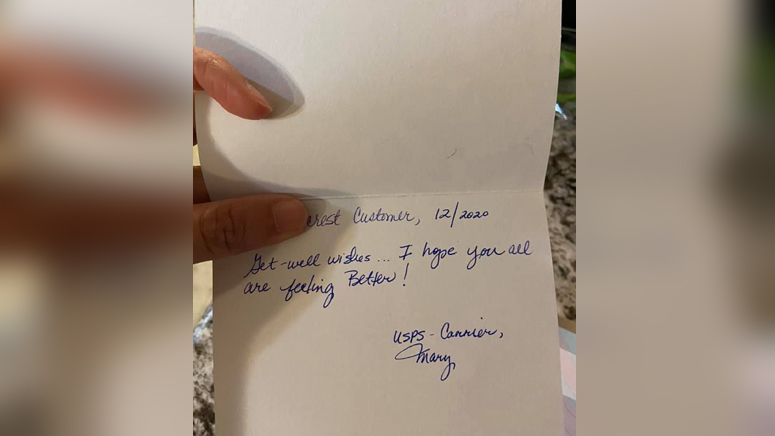 Customer, 12/2020
Get-well wishes... I hope you all
are feeling Better!
USPS-Carrier,
Mary